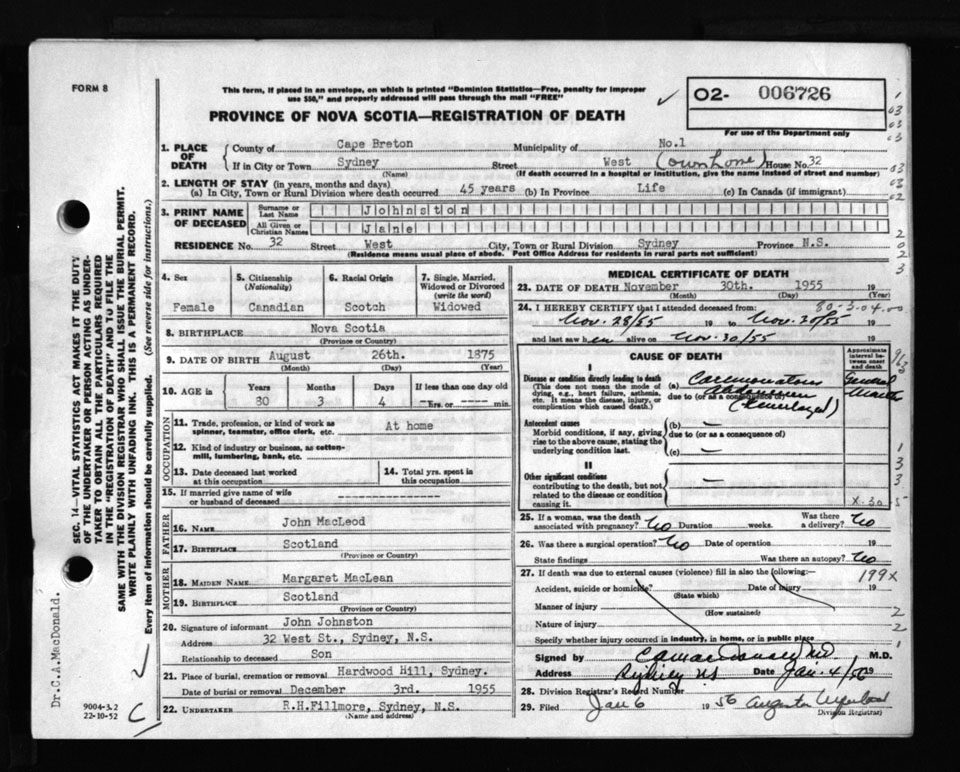 FORM 8
This form, if placed in an envelope, on which is printed "Dominion Statistics—Free, penalty for improper
use $50," and properly addressed will pass through the mail "FREE"
PROVINCE OF NOVA SCOTIA—REGISTRATION OF DEATH
O2- 006726
For use of the Department only
1. PLACE OF DEATH
County of Cape Breton Municipality of No.1
If in City or Town Sydney Street West (own home) House No. 32
(Name) (If death occurred in a hospital or institution, give the name instead of street and number)
2. LENGTH OF STAY (in years, months and days)
(a) In City, Town or Rural Division where death occurred 45 years (b) In Province Life (c) In Canada (if immigrant)
3. PRINT NAME OF DECEASED
Surname or Last Name Johnston
All Given or Christian Names Jane
RESIDENCE No. 32 Street West City, Town or Rural Division Sydney Province N.S.
(Residence means usual place of abode. Post Office Address for residents in rural parts not sufficient)
4. Sex
Female
5. Citizenship (Nationality)
Canadian
6. Racial Origin
Scotch
7. Single, Married, Widowed or Divorced (write the word)
Widowed
8. BIRTHPLACE Nova Scotia
(Province or Country)
9. DATE OF BIRTH August 26th. 1875
(Month) (Day) (Year)
10. AGE in Years Months Days If less than one day old
30 3 4 ---- hrs. or ---- min.
OCCUPATION
11. Trade, profession, or kind of work as spinner, teamster, office clerk, etc. At home
12. Kind of industry or business, as cotton-mill, lumbering, bank, etc.
13. Date deceased last worked at this occupation
14. Total yrs. spent in this occupation
15. If married give name of wife or husband of deceased
FATHER
16. NAME John MacLeod
17. BIRTHPLACE Scotland
(Province or Country)
MOTHER
18. MAIDEN NAME Margaret MacLean
19. BIRTHPLACE Scotland
(Province or Country)
20. Signature of informant John Johnston
Address 32 West St., Sydney, N.S.
Relationship to deceased Son
21. Place of burial, cremation or removal Hardwood Hill, Sydney.
Date of burial or removal December 3rd. 1955
22. UNDERTAKER R.H.Fillmore, Sydney, N.S.
(Name and address)
MEDICAL CERTIFICATE OF DEATH
23. DATE OF DEATH November 30th. 1955 19
(Month) (Day) (Year)
24. I HEREBY CERTIFY that I attended deceased from: 80-3-04-00
Nov. 28/55 19 to Nov. 20/55 19
and last saw her alive on Nov. 30/55 19
CAUSE OF DEATH
Approximate interval between onset and death
I
Disease or condition directly leading to death
(This does not mean the mode of dying, e.g., heart failure, asthenia, etc. It means the disease, injury, or complication which caused death.)
(a) Carcinomatous
due to (or as a consequence of)
Antecedent causes
Morbid conditions, if any, giving rise to the above cause, stating the underlying condition last.
(b) —
due to (or as a consequence of)
(c) —
II
Other significant conditions
contributing to the death, but not related to the disease or condition causing it.
—
X-30
25. If a woman, was the death associated with pregnancy? No Duration weeks. Was there a delivery? No
26. Was there a surgical operation? No Date of operation 19
State findings Was there an autopsy? No
27. If death was due to external causes (violence) fill in also the following:— 199X
Accident, suicide or homicide? Date of injury 19
(State which)
Manner of injury
(How sustained)
Nature of injury
Specify whether injury occurred in industry, in home, or in public place
Signed by C A MacDonald MD M.D.
Address Sydney NS Date Jan. 4/56 19
28. Division Registrar's Record Number
29. Filed Jan 6 1956
Division Registrar)
SEC. 14—VITAL STATISTICS ACT MAKES IT THE DUTY
OF THE UNDERTAKER OR PERSON ACTING AS UNDER-
TAKER TO OBTAIN ALL THE PARTICULARS REQUIRED
IN THE "REGISTRATION OF DEATH" AND TO FILE THE
SAME WITH THE DIVISION REGISTRAR WHO SHALL ISSUE THE BURIAL PERMIT.
WRITE PLAINLY WITH UNFADING INK. THIS IS A PERMANENT RECORD.
Every item of information should be carefully supplied. (See reverse side for instructions.)
Dr.C.A.MacDonald.
9004-3.2
22-10-52
C